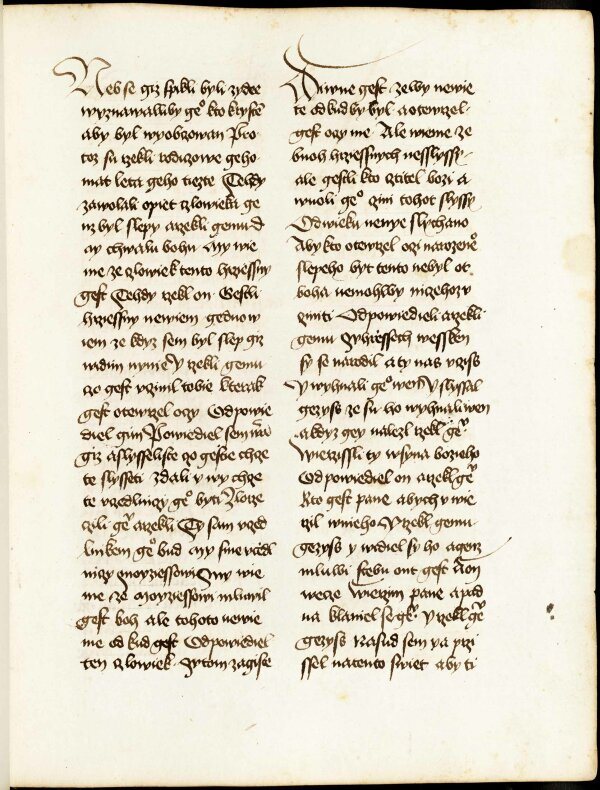 Neb se giz spikli byli zydee
wyznawaliby geº kto krystē
aby byl wyobczowan Pro
toz su rzekli rodiczowe geho
mat leta geho tiezte Tehdy
zawolali opiet czlowieka ge
nz byl slepy a rzekli gemu d
ay chwalu bohu my wie
me ze czlowiek tento hrziessny
gest Tehdy rzekl on Gestli
hrziessny newiem gedno w
iem ze kdyz sem byl slep giz
widim nynie Y rzekli gemu
czo gest vczinil tobie kterak
gest otewrzel oczy Odpowie
diel gim Powiediel sem wā
giz a slysseliste czo gestie chcze
te slysseti zdali y wy chcze
te vczedlniczy geº byti Zlorze
czili gē a rzekli Ty sam vczed
lnikem geº bud my sme vczedl
niczy moyziessowi my wie
me ze moyziessowi mluwil
gest boh ale tohoto newie
me od kud gest Odpowiediel
ten czlowiek Przytom zagiste
Diwne gest ze wy newie
te odkud by byl a otewrzel
gest oczy me Ale wieme ze
buoh hrziessnych neslyssy
ale gestli kto cztitel bozi a
wuoli geº czini tohot slyssy
Odwieku nenye slychano
Aby kto otewrzel oczi narozeneº
slepeho byt tento nebyl ot
boha nemohlby niczehoz v
cziniti Odpowiedieli a rzekli
gemu W hrziessech wessken
sy se narodil a ty nas vczis
Y wyhnali geº wen Y slyssal
gezyss ze su ho wyhnali wen
a kdyz gey nalezl rzekl gē
Wierzissli ty w syna bozieho
Odpowiediel on a rzekl gē
Kto gest pane abych v wie
rzil w nieho Y rzekl gemu
gezyss y widiel sy ho a genz
mluwi s tebu ont gest A on
wecze Wierzim pane a pad
na klaniel se gē Y rzekl gē
gezyss Na sud sem ya przi
ssel na tento swiet aby ti